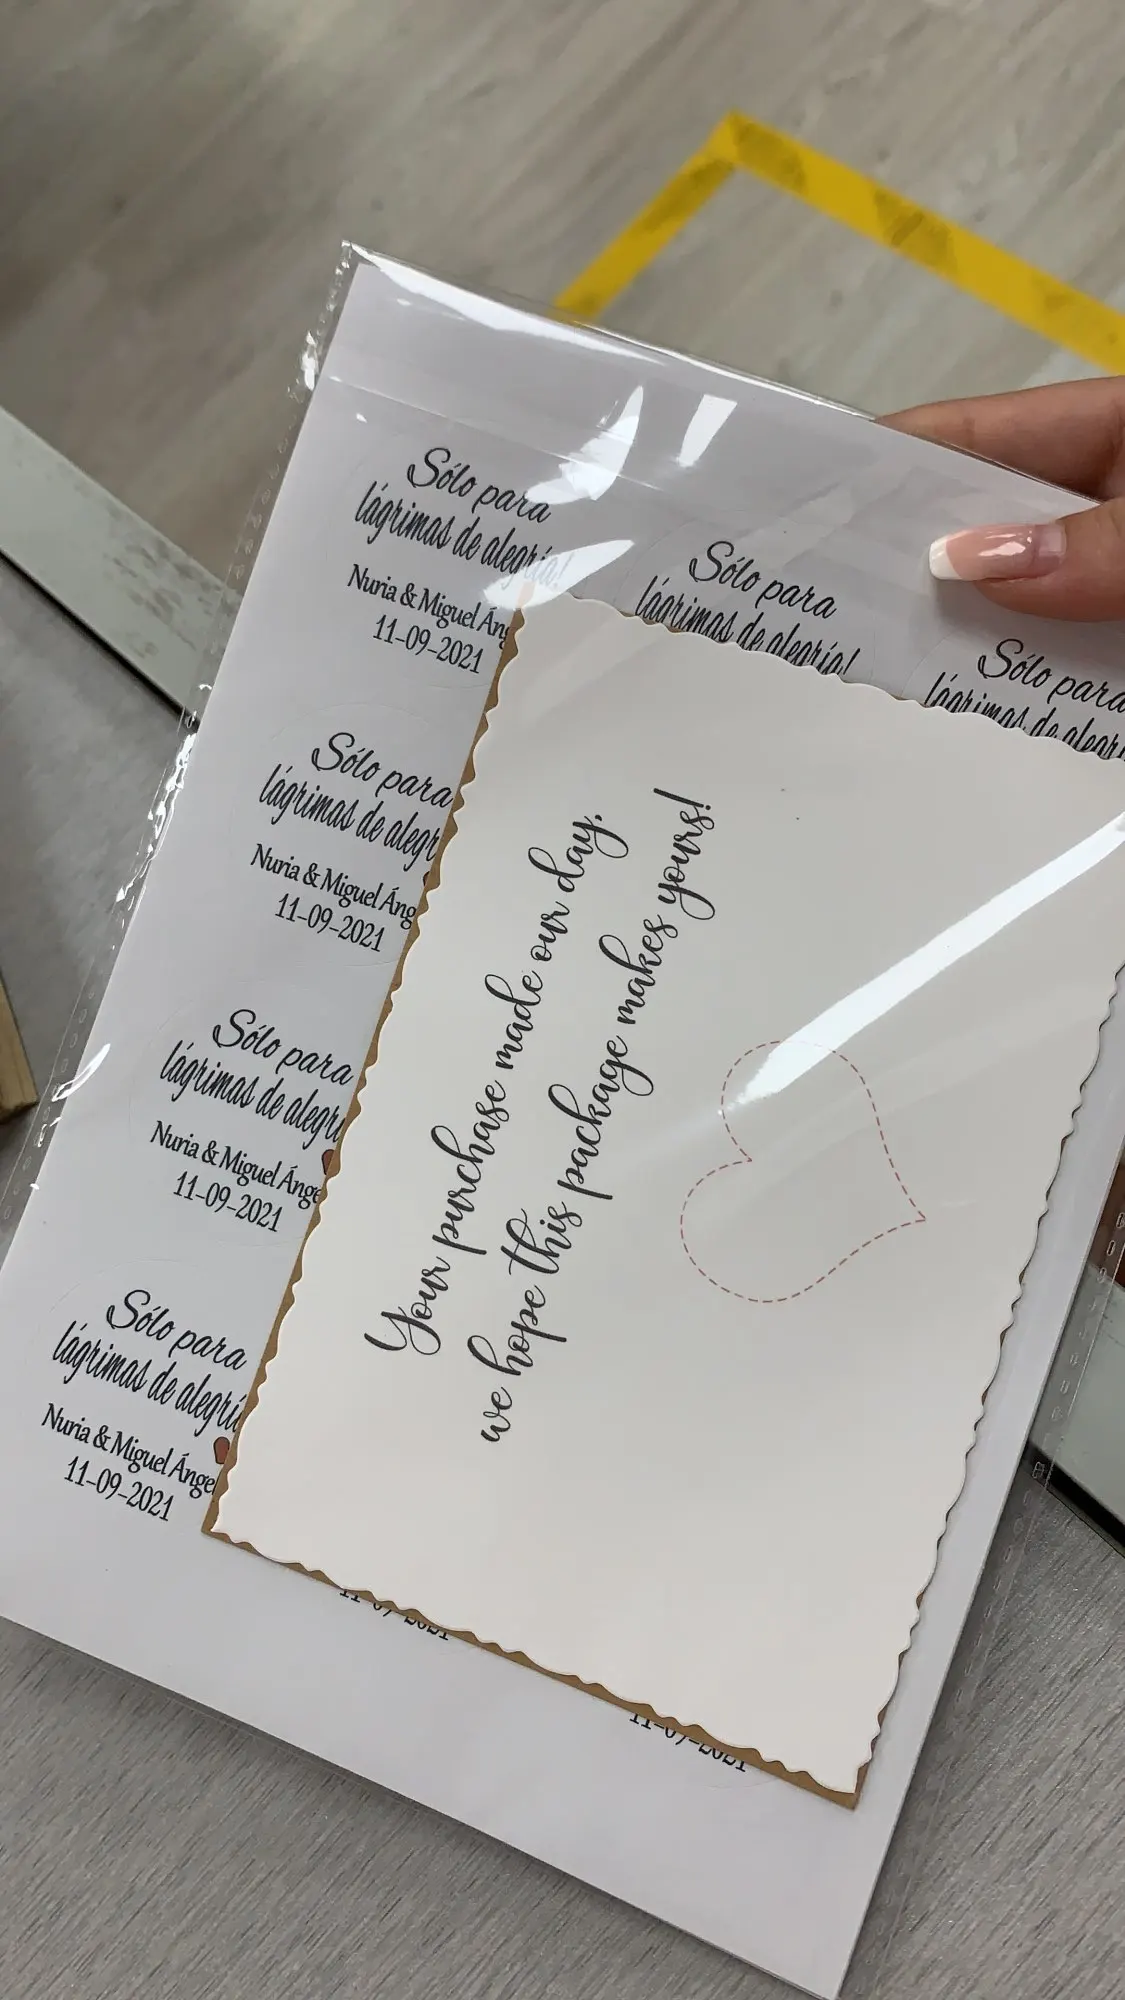 Sólo para
lágrimas de alegría!
Nuria & Miguel Áng
11-09-2021
Sólo para
lágrimas de alegría!
Sólo para
lágrimas de alegr
Sólo para
lágrimas de alegr
Nuria & Miguel Áng
11-09-2021
Sólo para
lágrimas de alegrí
Nuria & Miguel Ánge
11-09-2021
Sólo para
lágrimas de alegría
Nuria & Miguel Ángel
11-09-2021
Your purchase made our day,
we hope this package makes yours!
11-09-2021
11-09-2021